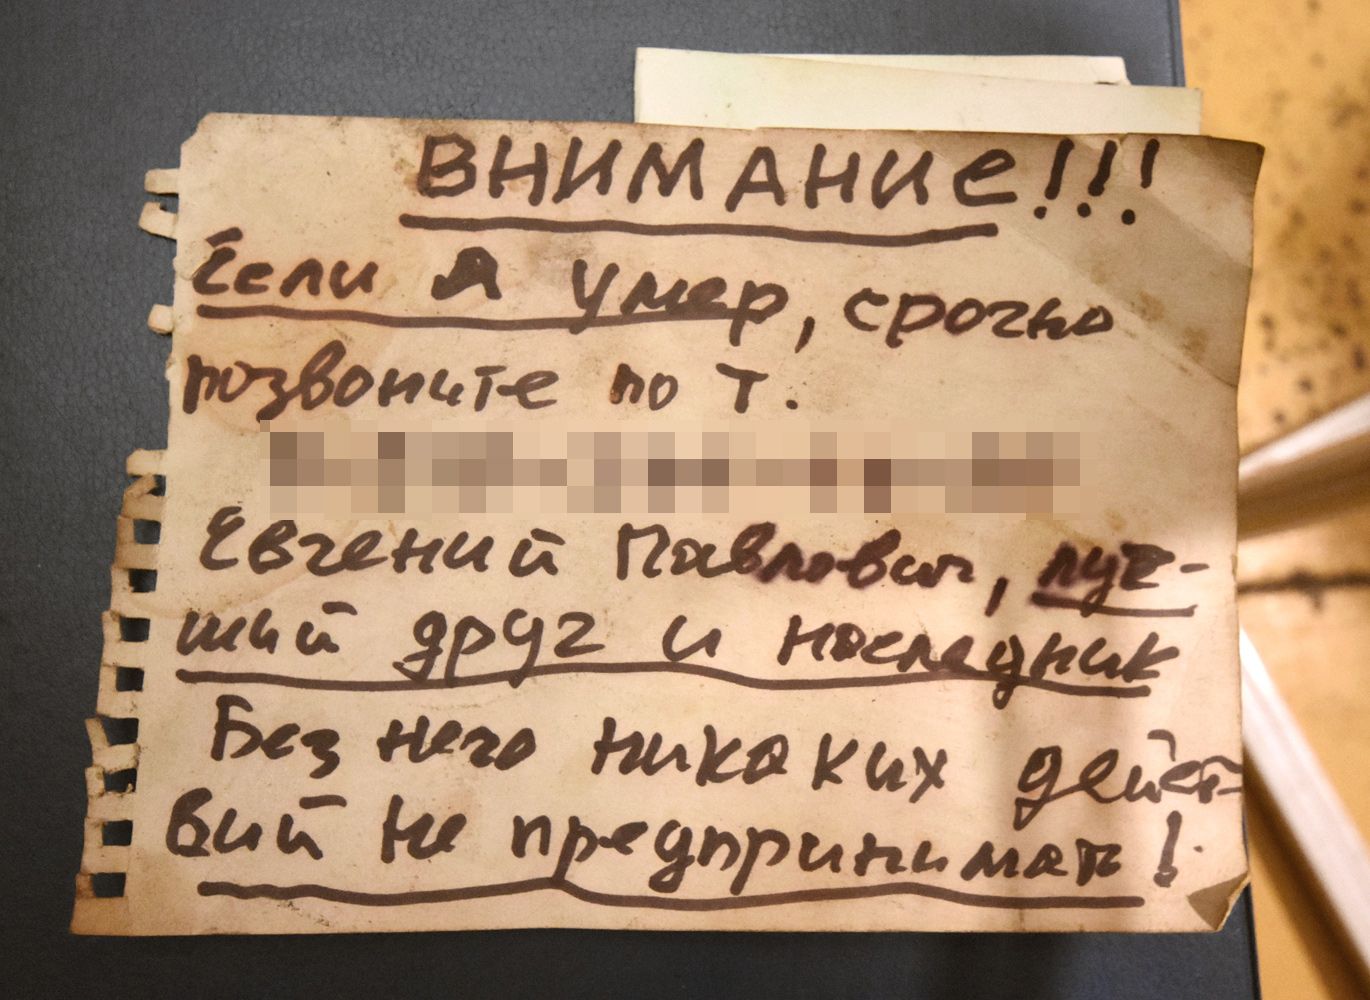 ВНИМАНИЕ!!!
Если я умер, срочно
позвоните по т.
Евгений Павлович, луч-
ший друг и наследник
Без него никаких дейст-
вий не предпринимать!